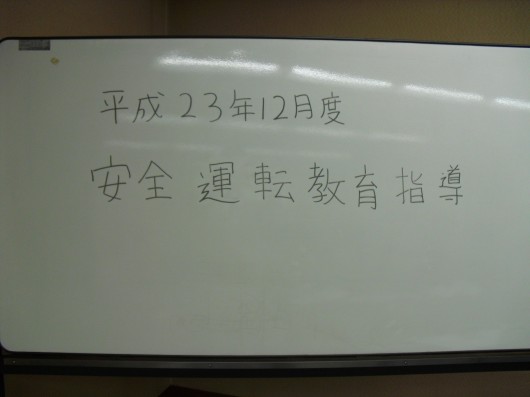 平成23年12月度
安全運転教育指導